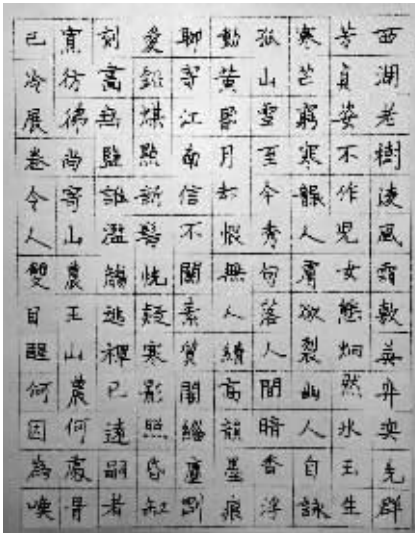 西湖老樹凌風霜敷英弈奕先群
芳貞姿不作兒女態炯然冰玉生
寒芒窮寒躶人膚欲裂幽人自詠
孤山雪至今秀句落人間暗香浮
動黃昏月却恨無人續高韻墨痕
聊寄江南信不關素質闇緇塵
愛鉛煤點新髻恍疑寒影照昏缸
刻高無鹽誰濫觴逃禪已遠嗣者
寡彷彿尚寄山農王山農何處得
已冷展卷令人雙目醒何因為喚